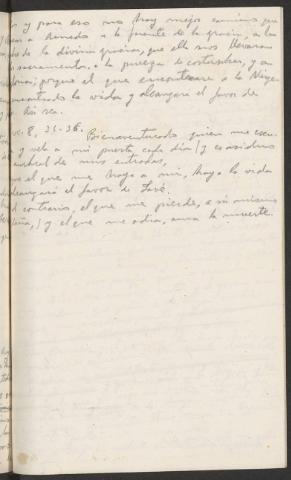 y para eso no hay mejor camino que
a la fuente de la gracia, a la
de la divina gracia, que ella nos llevara
sacramentos, a la pureza de costumbres, y a
porque el que encontrare a la Virgen
encontrado la vida y alcanzará el favor de
Así sea.
8, 35-36. Bienaventurado quien me escu-
y vela a mi puerta cada día / y es asiduo
umbral de mis entradas,
el que me haya a mi, haya la vida
alcanzará el favor de Yavé.
contrario, el que me pierde, a sí mismo
/ y el que me odia, ama la muerte.